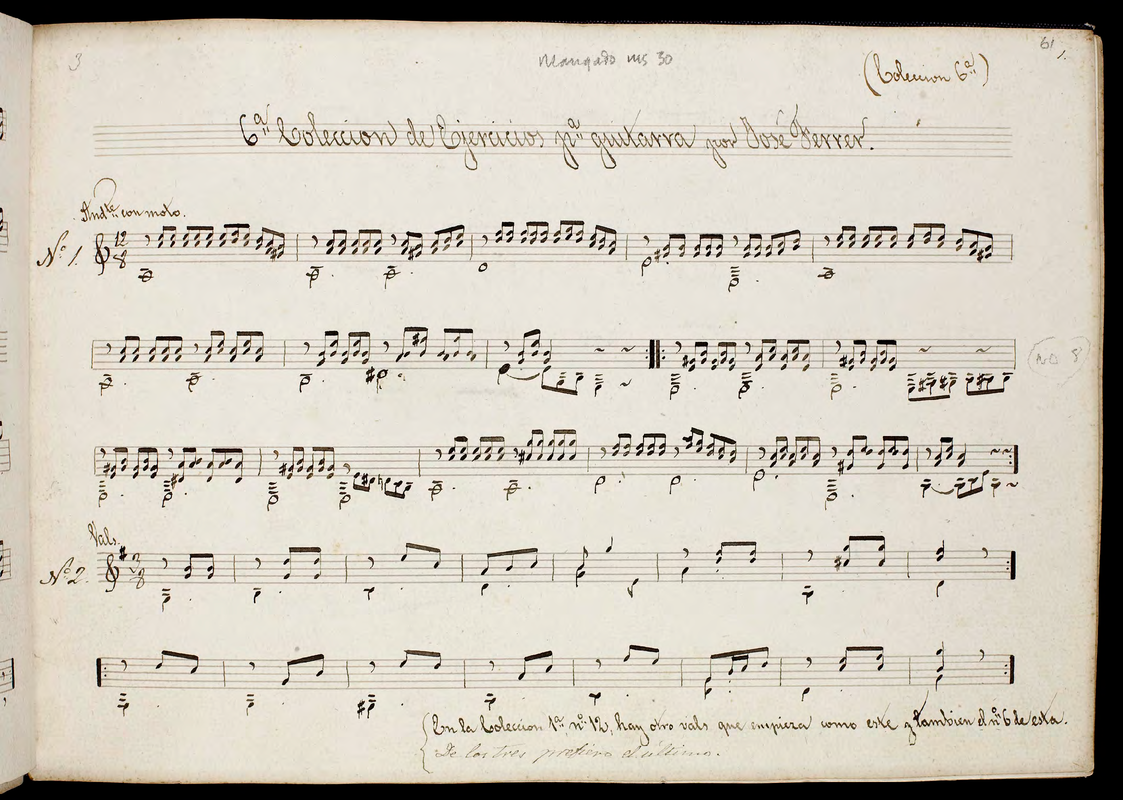 3
Mangado ms 30
61
1.
(Coleccion 6ª)
6ª Coleccion de Ejercicios pª guitarra por José Ferrer.
Andte con moto.
Nº 1.
12
8
8
Vals.
Nº 2.
3
8
En la Coleccion 1ª, nº 12, hay otro vals que empieza como este y tambien el nº 6 de esta.
De los tres prefiero el último.